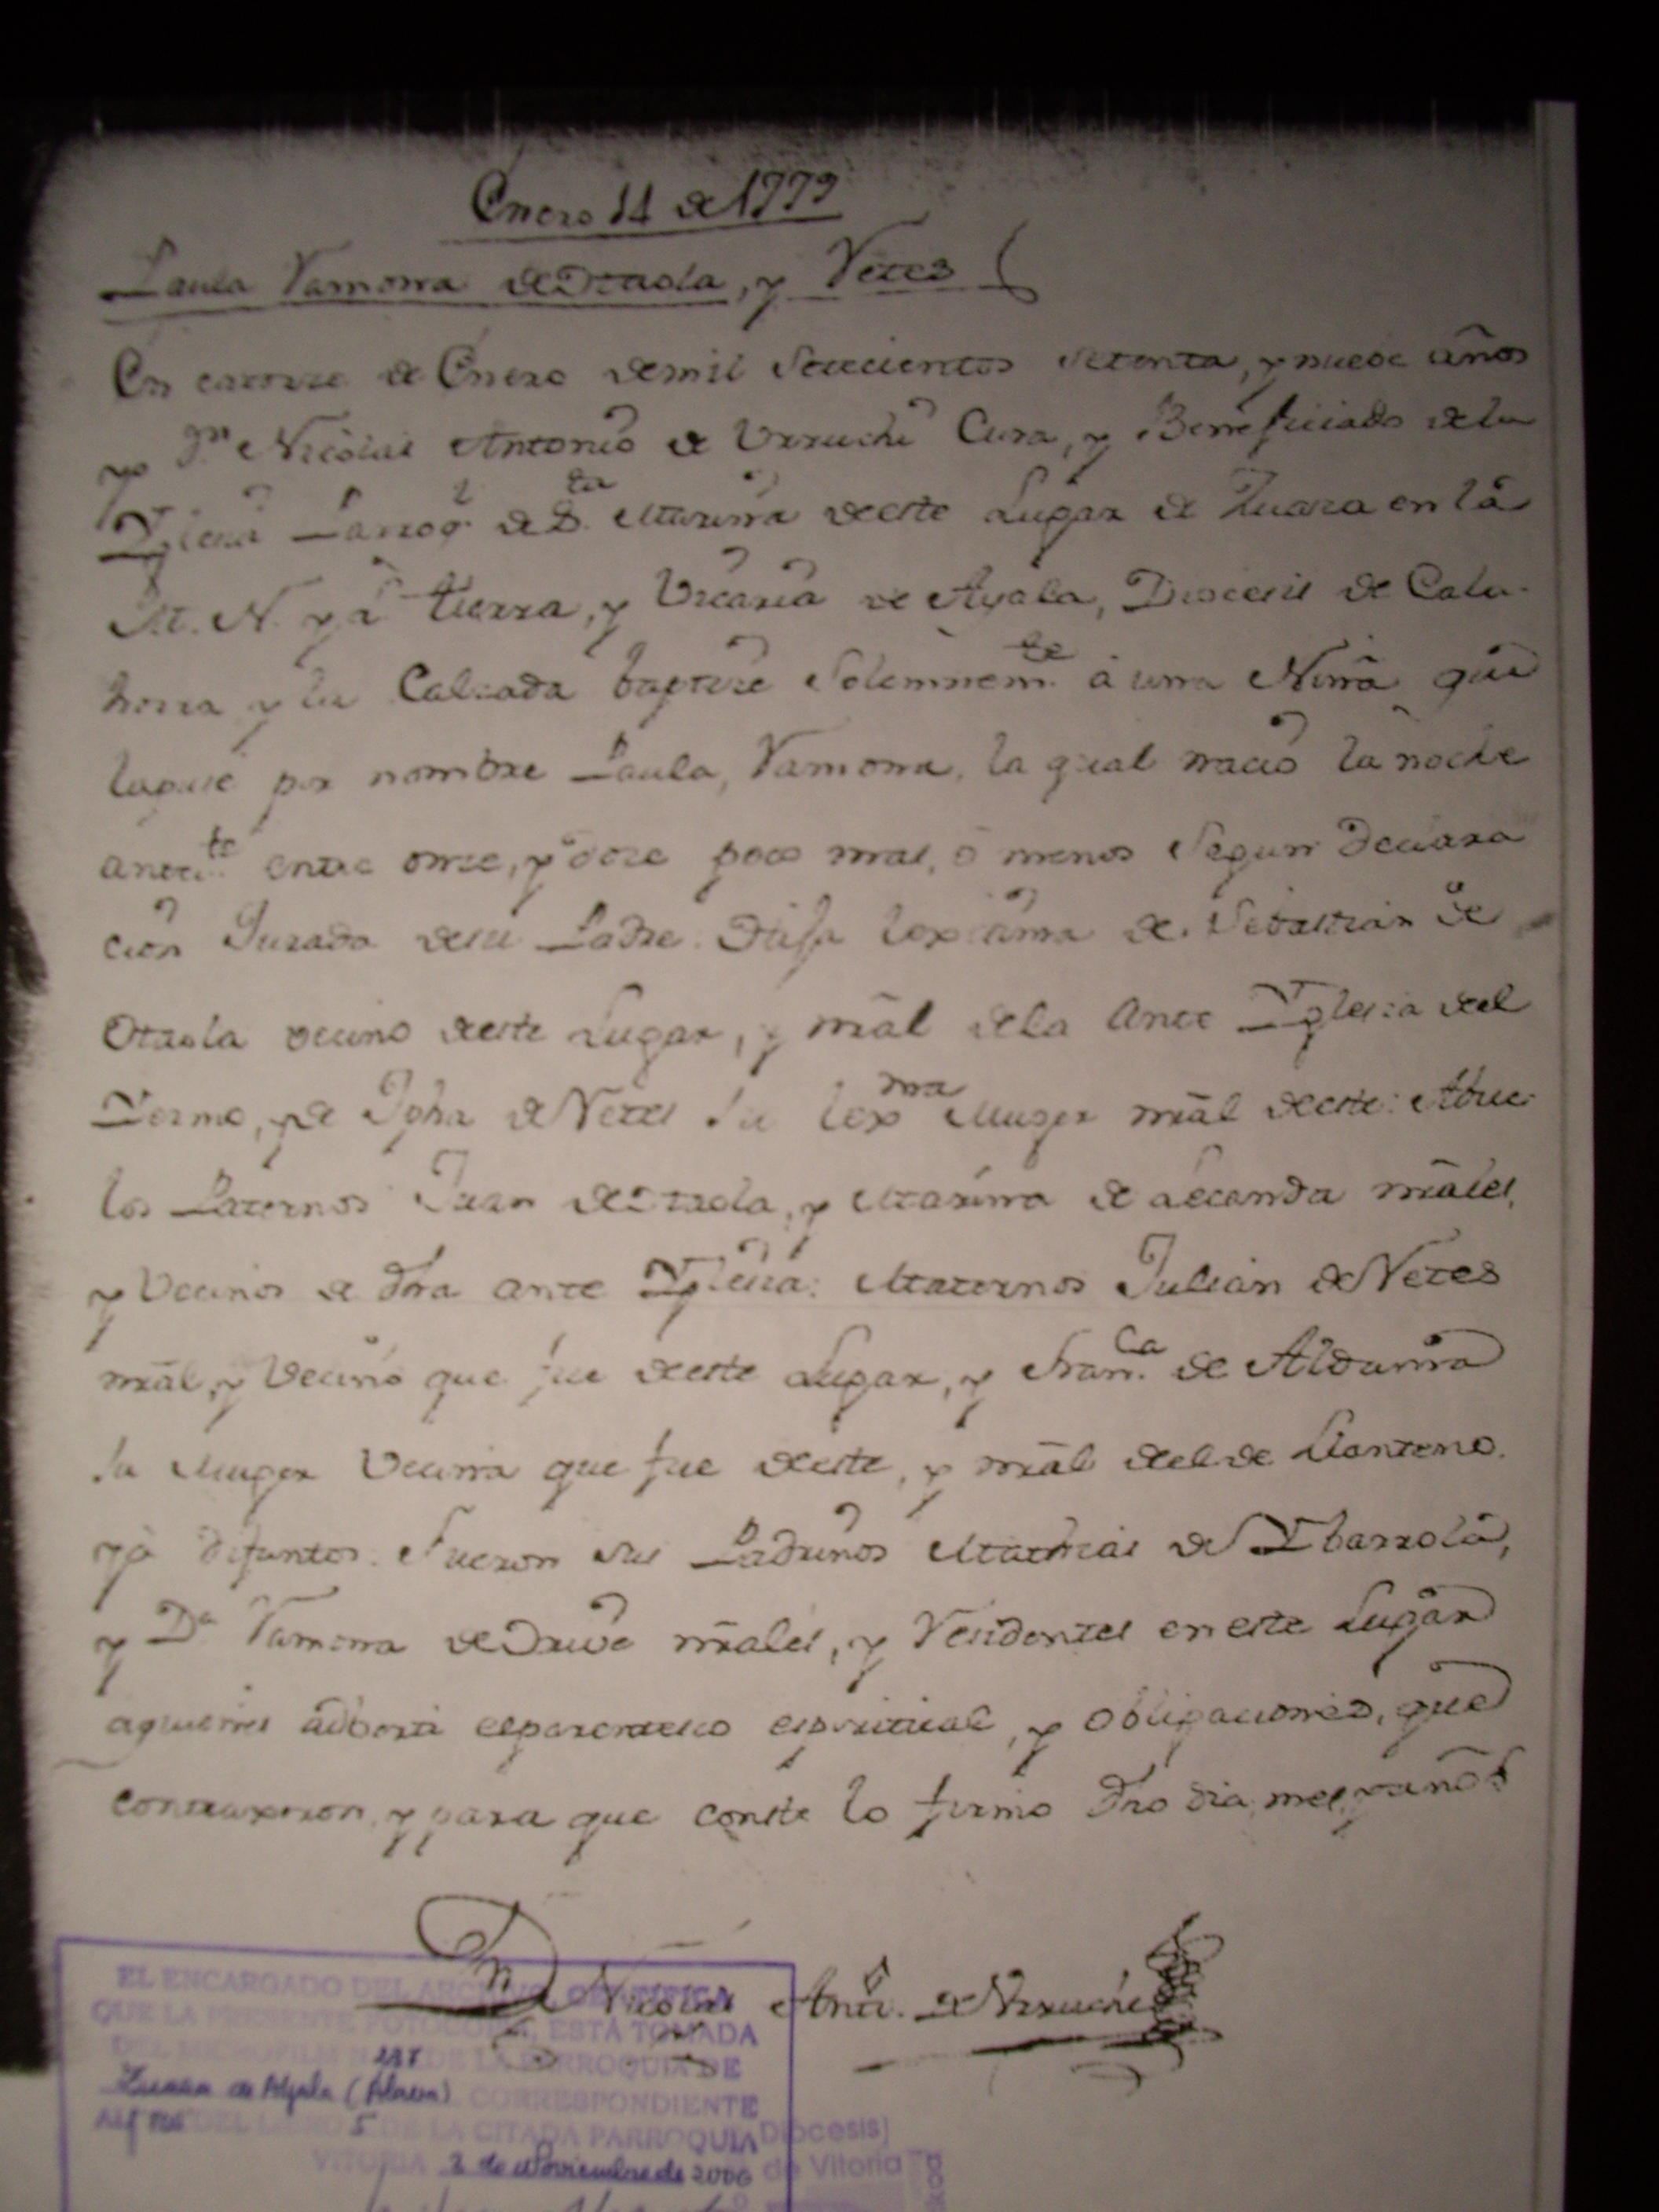 Enero 14 de 1779
Paula Ramona de Otaola, y Retes
En catorze de Enero demil Setecientos setenta, y nuebe años
yo Dn Nicolas Antonio de Urruchi Cura, y Beneficiado dela
Yglesia Parroql de Sta Marina deeste Lugar de Zuaza en la
M. N. y tierra, y Vicaria de Ayala, Diocesis de Cala-
horra y la Calzada baptize Solemnemte à una Niña que
lapuse por nombre Paula, Ramona, la qual nacio la noche
antezte entre onze, y doze poco mas, ò menos segun Declara
cion Jurada desu Padre: Hija lexitima de Sebastian de
Otaola vecino deeste Lugar, y nral dela Ante Yglesia del
Yermo, y de Jpha de Retes su lexma Muger nral deeste: Abue-
los Paternos Juan de Otaola, y Marina de Lecanda nrales,
y Vecinos de dha ante Yglesia: Maternos Julian de Retes
nral, y Vecino que fue deeste Lugar, y Franca de Aldama
su Muger Vecina que fue deeste, y nral del de Llanteno.
yà difuntos. Fueron sus Padrinos Mathias de Ybarrola,
y Da Ramona de Orive nrales, y Residentes en este Lugar
aquienes adberti elparentesco espiritual, y obligaciones, que
contraxeron, y para que conste lo firmo dho dia, mes, y año
Dn Nicolas Anto. de Urruchi
EL ENCARGADO DEL ARCHIVO, CERTIFICA
QUE LA PRESENTE FOTOCOPIA, ESTÁ TOMADA
DEL MICROFILM Nº DE LA PARROQUIA DE
Zuaza de Ayala (Alava) CORRESPONDIENTE
AL DEL LIBRO 5 DE LA CITADA PARROQUIA
VITORIA 2 de Noviembre de 2006
Diócesis
de Vitoria